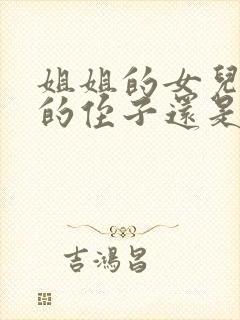 姐姐的女兒
的侄子還是
吉鴻昌